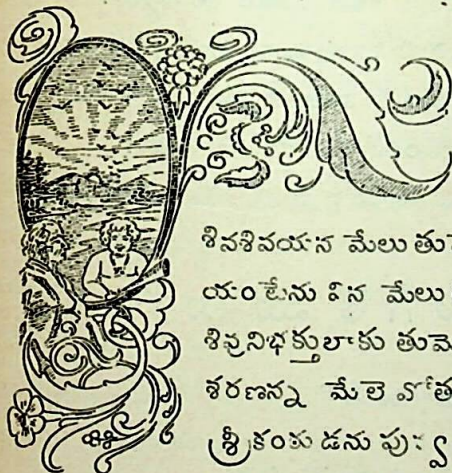 శివశివయన మేలు తు
యంటేను విన మేలు
శివునిభక్తులాకు తుమె
శరణన్న మేలె
శ్రీకంఠు డను పు